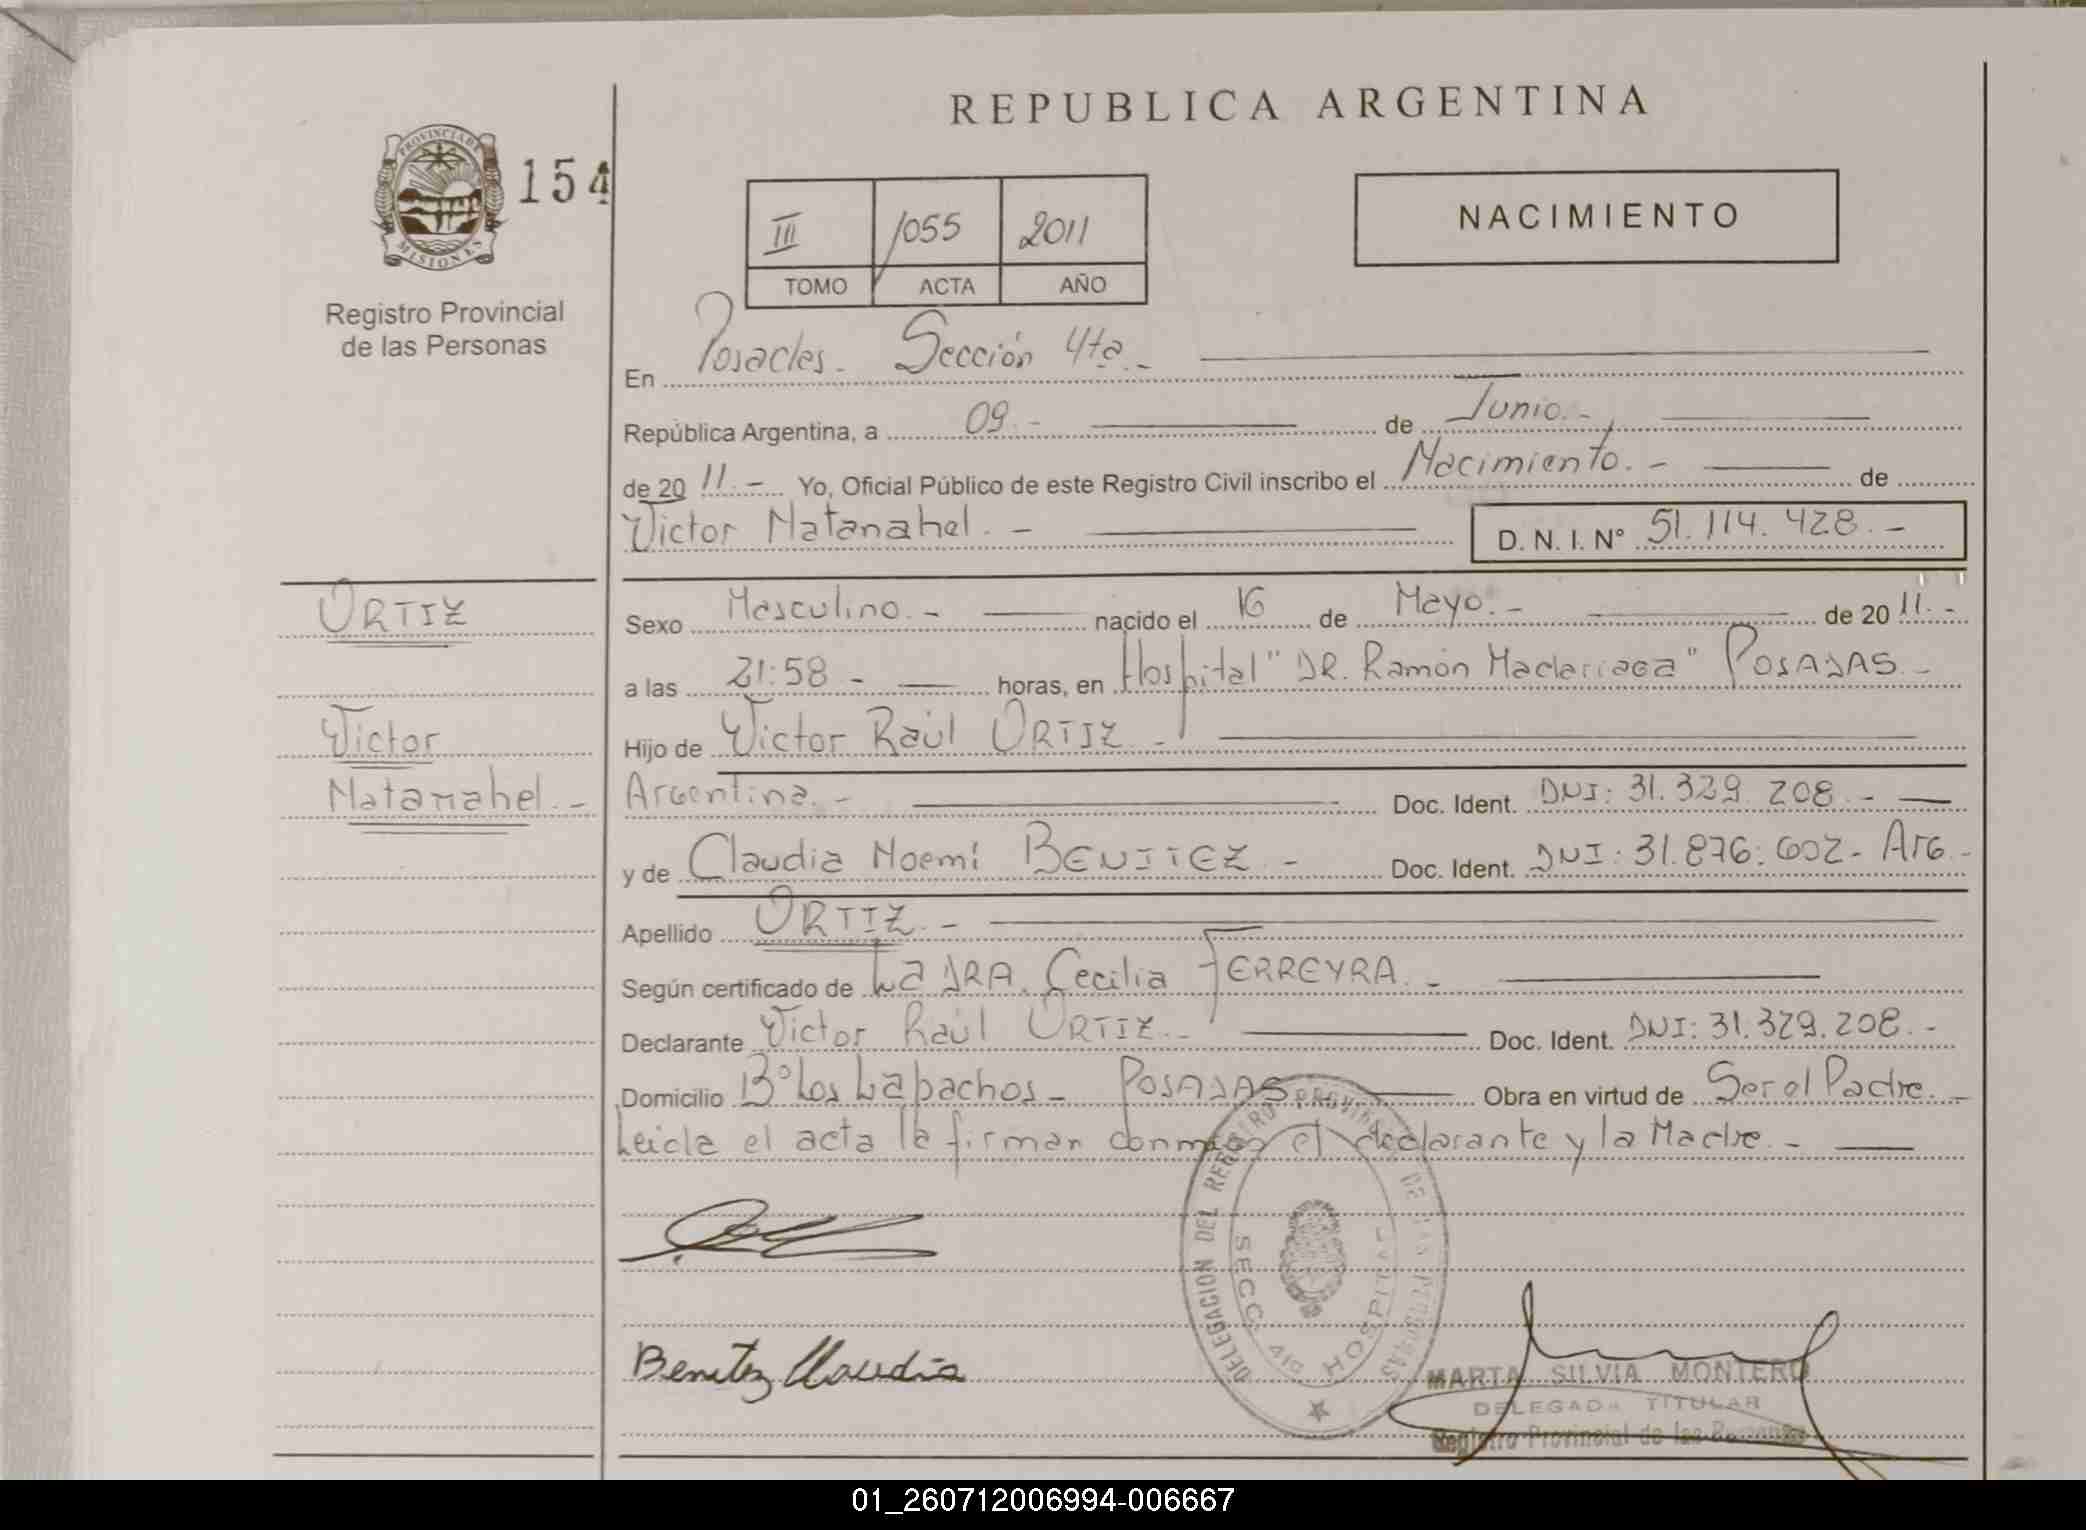 REPUBLICA ARGENTINA
PROVINCIA DE
MISIONES
154
Registro Provincial
de las Personas
III /055 2011
TOMO ACTA AÑO
NACIMIENTO
En Posadas. Sección 4ta.-
República Argentina, a 09.- de Junio.-
de 20 11.- Yo, Oficial Público de este Registro Civil inscribo el Nacimiento.- de
Victor Natanahel.- D. N. I. N° 51.114.428.-
ORTIZ
Victor
Natanahel.-
Sexo Masculino.- nacido el 16 de Mayo.- de 20 11.-
a las 21:58 - horas, en Hospital "DR. Ramón Madariaga" POSADAS.-
Hijo de Victor Raúl ORTIZ.-
Argentina.- Doc. Ident. DNI: 31.329.208.-
y de Claudia Noemí BENITEZ.- Doc. Ident. DNI: 31.876.602- Arg.-
Apellido ORTIZ.-
Según certificado de La DRA. Cecilia FERREYRA.-
Declarante Victor Raúl ORTIZ.- Doc. Ident. DNI: 31.329.208.-
Domicilio B° Los Lapachos- POSADAS Obra en virtud de Ser el Padre.-
Leida el acta la firman conmigo el declarante y la Madre.-
DELEGACION DEL REGISTRO PROVINCIAL DE LAS PERSONAS
SECC. 4ta HOSPITAL
Benitez Claudia
MARTA SILVIA MONTERO
DELEGADA TITULAR
Registro Provincial de las Personas
01_260712006994-006667